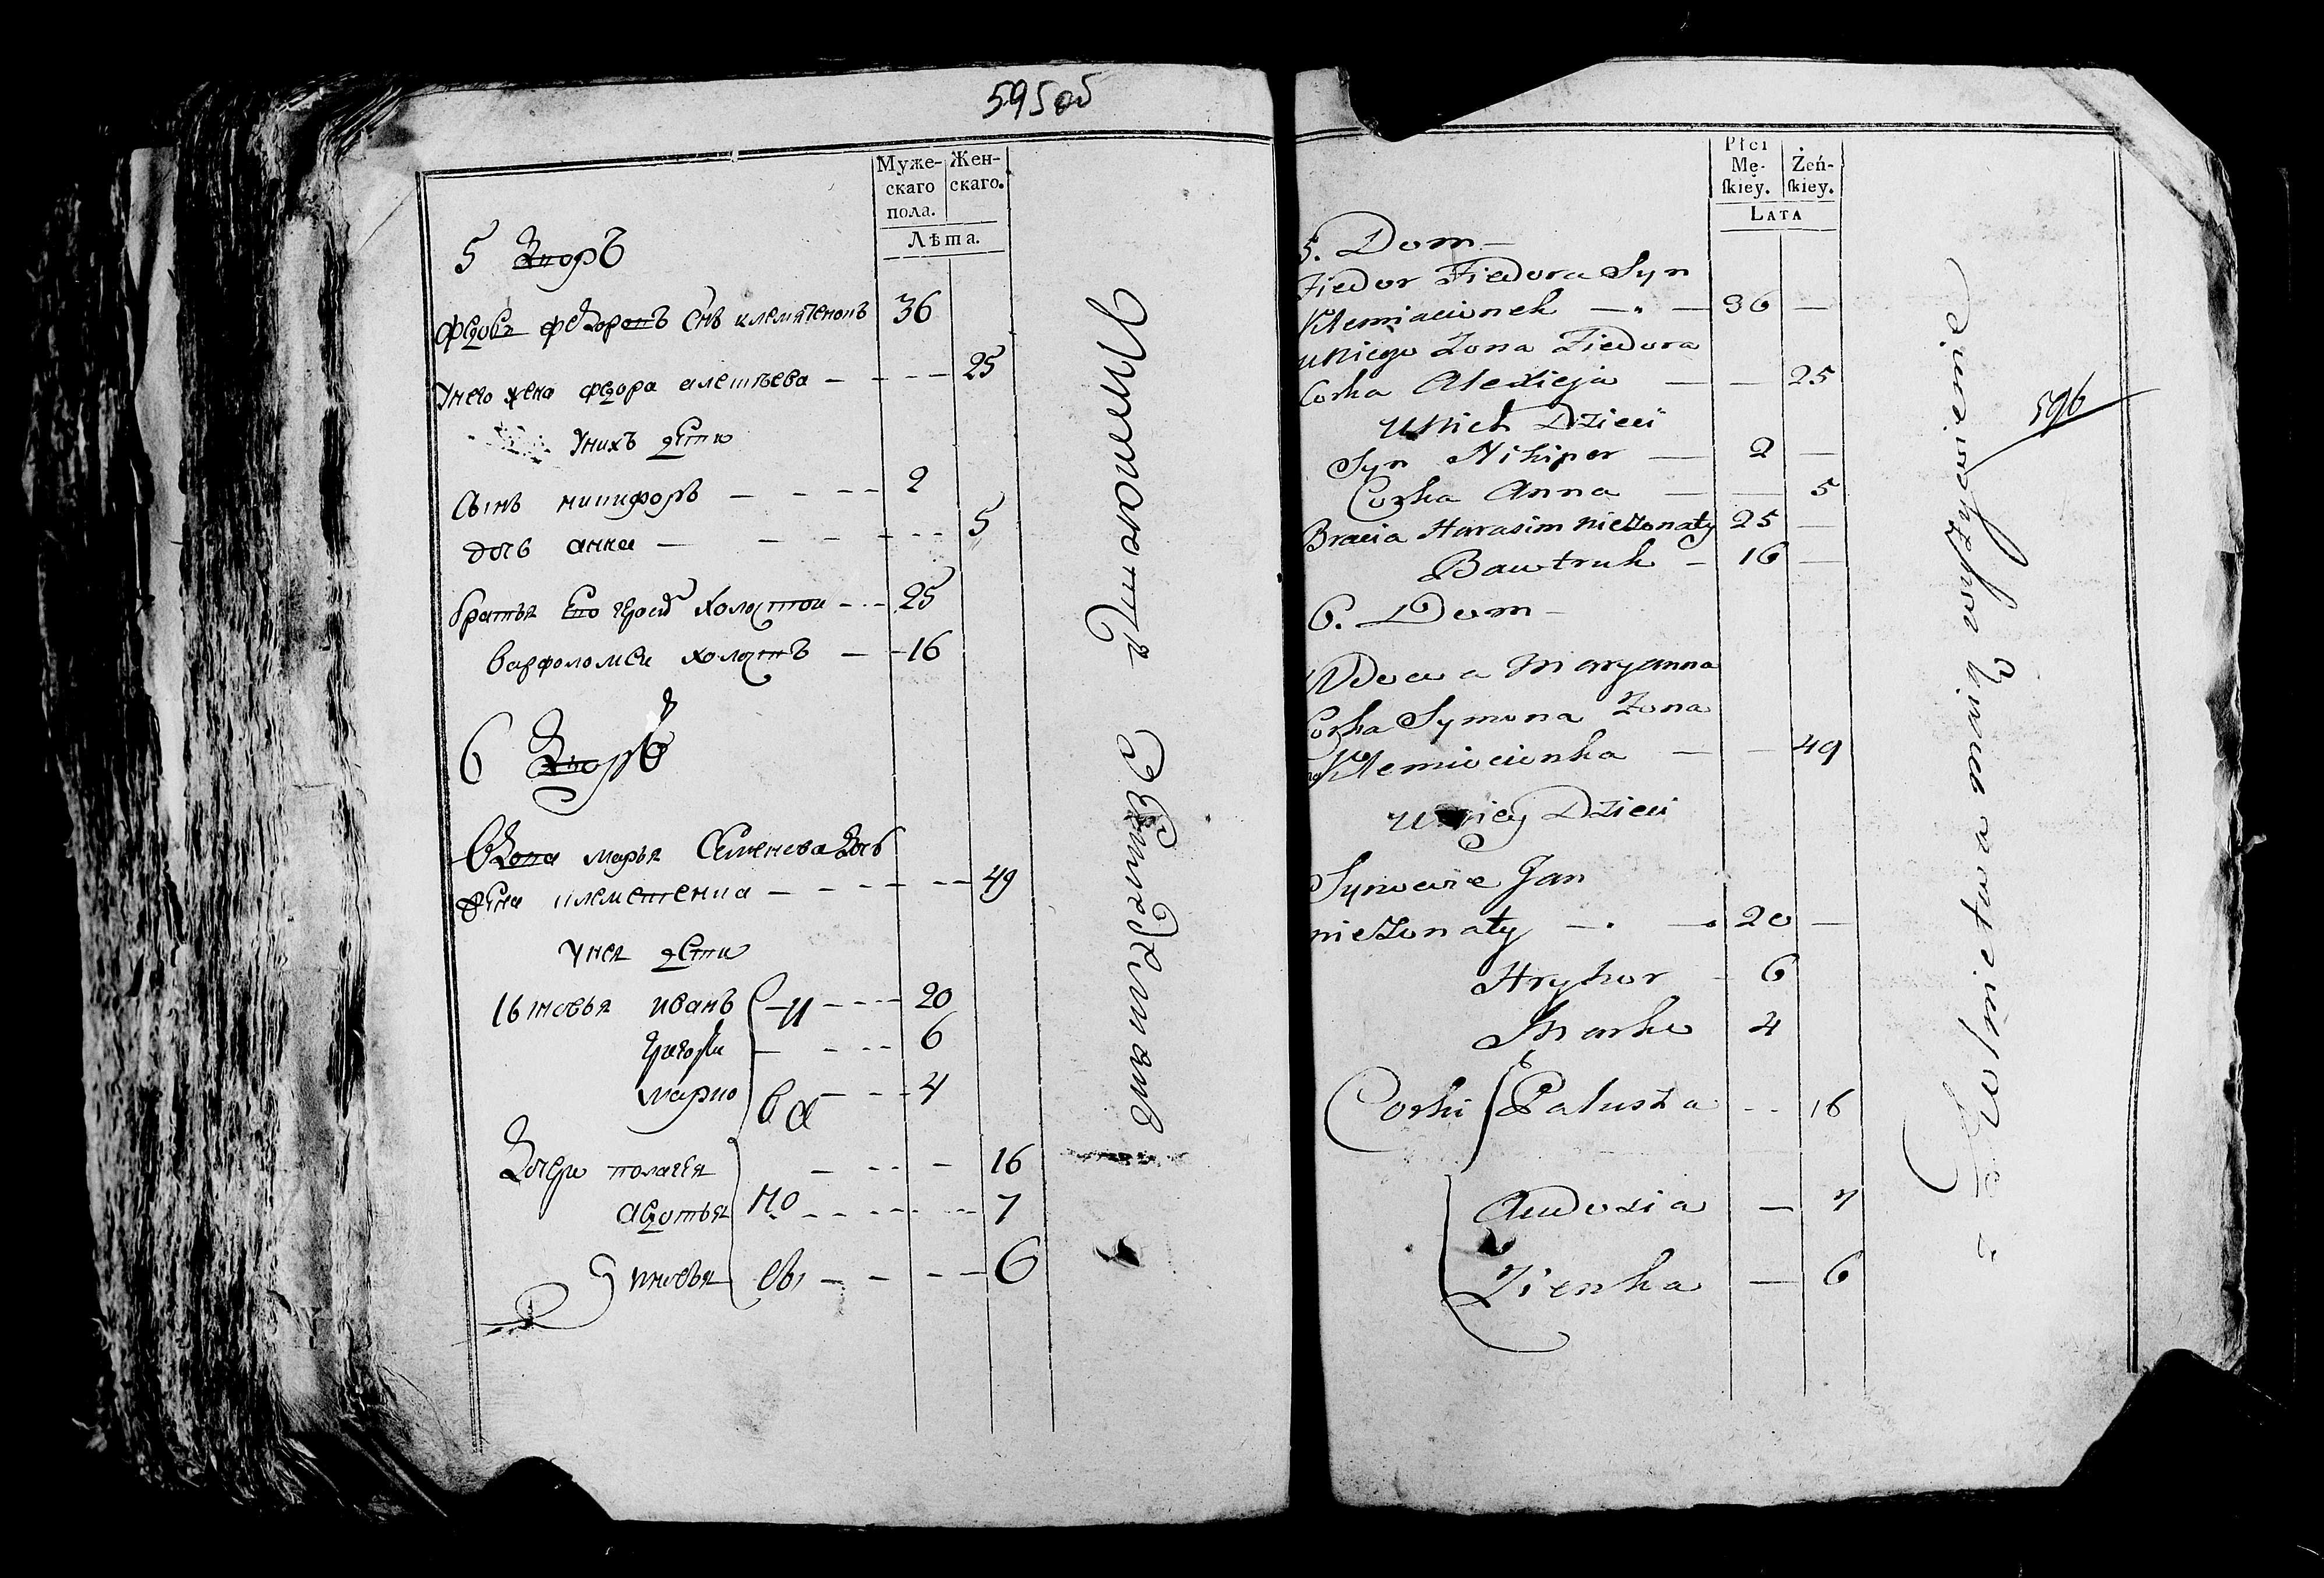 595об
Муже-
скаго
пола.
Жен-
скаго.
Лѣта.
5 Дворъ
Федоръ Федоровъ Снъ Клемятенокъ 36
Унего жена Федора алеѯѣева — — — 25
Унихъ дети
Сынъ никифоръ — — — 2
дочь анна — — — — 5
братья Его герасим холостои — — 25
варфоломеи холостъ — — 16
6 Дворъ
Вдова марья Семенова Дочь
Жена клеметенка — — — — — 49
Унея дети
Сыновья иванъ — — — 20
григори — — — 6
марко — — 4
Дочери полагея — — — 16
авдотья — — — 7
зиновья — — — — 6
Земледелием
Płci
Mę-
ſkiey.
Żeń-
ſkiey.
LATA
5. Dom —
Fiedor Fiedora Syn
Klemiacionek — „ — 36 —
u Niego Żona Fiedora
Corka Alexieja — — 25
u Nich Dzieci
Syn Nikiper — 2 —
Corka Anna — — 5
Bracia Harasim nieżonaty 25 —
Bawtruk — 16 —
6. Dom —
Wdowa Maryanna
Corka Symona Żona
Klemiocionka — — 49
u Niey Dzieci
Synowie Jan
nieżonaty — . — 20 —
Hryhor — 6
Marko 4
Corki Paluszka - - 16
Audosia — 7
Zienka — 6
z Rolnictwa maią wyżywienie
596